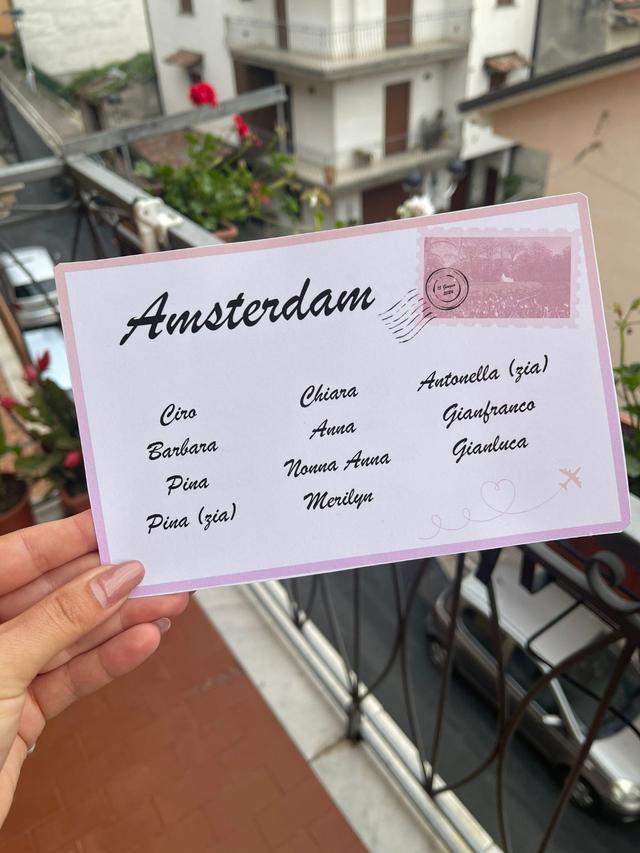 Amsterdam
Ciro
Barbara
Pina
Pina (zia)
Chiara
Anna
Nonna Anna
Merilyn
Antonella (zia)
Gianfranco
Gianluca